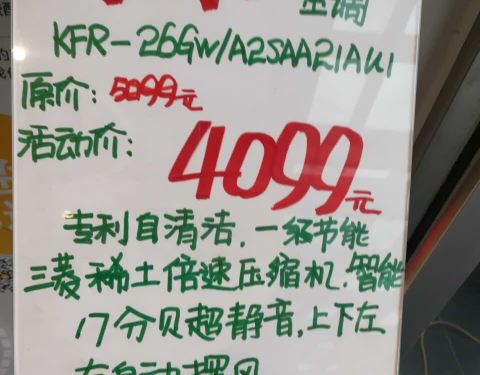 空调
KFR-26GW/A2SAA21AU1
原价：5099元
活动价：
4099元
专利自清洁，一级节能
三菱稀土倍速压缩机，智能
17分贝超静音，上下左
右自动摆风